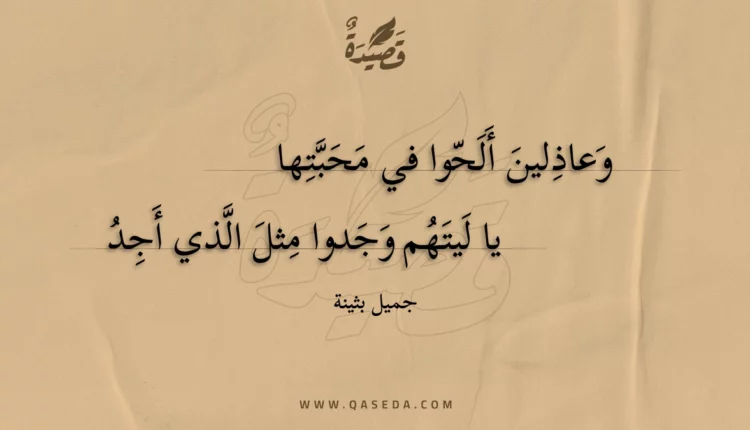 قَصِيْدَةٌ
وَعاذِلينَ أَلَحّوا في مَحَبَّتِها
يا لَيتَهُم وَجَدوا مِثلَ الَّذي أَجِدُ
جميل بثينة
WWW.QASEDA.COM